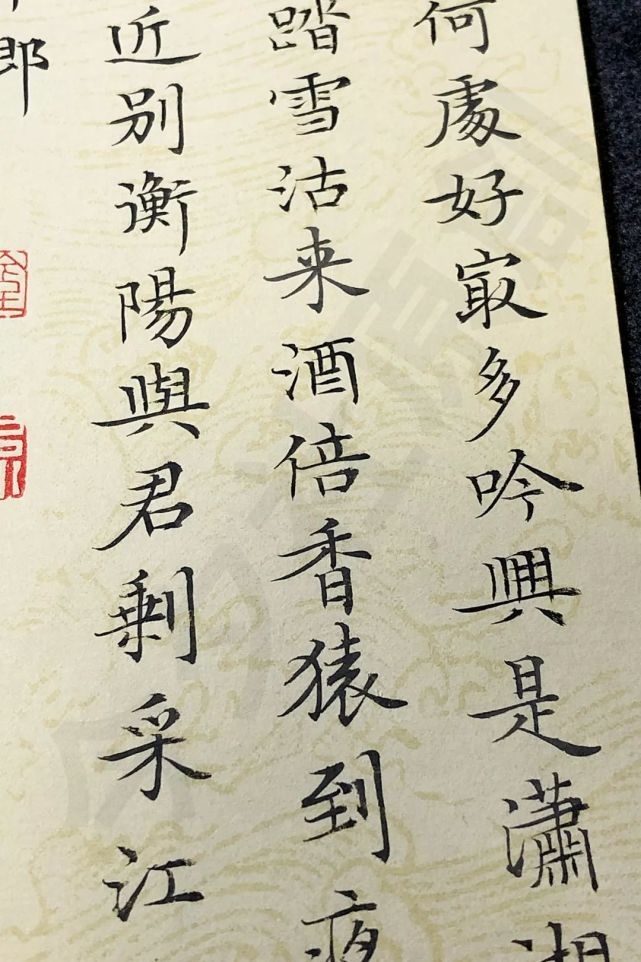 何處好冣多吟興是瀟湘
踏雪沽来酒倍香猿到夜
近別衡陽與君剩采江
郎